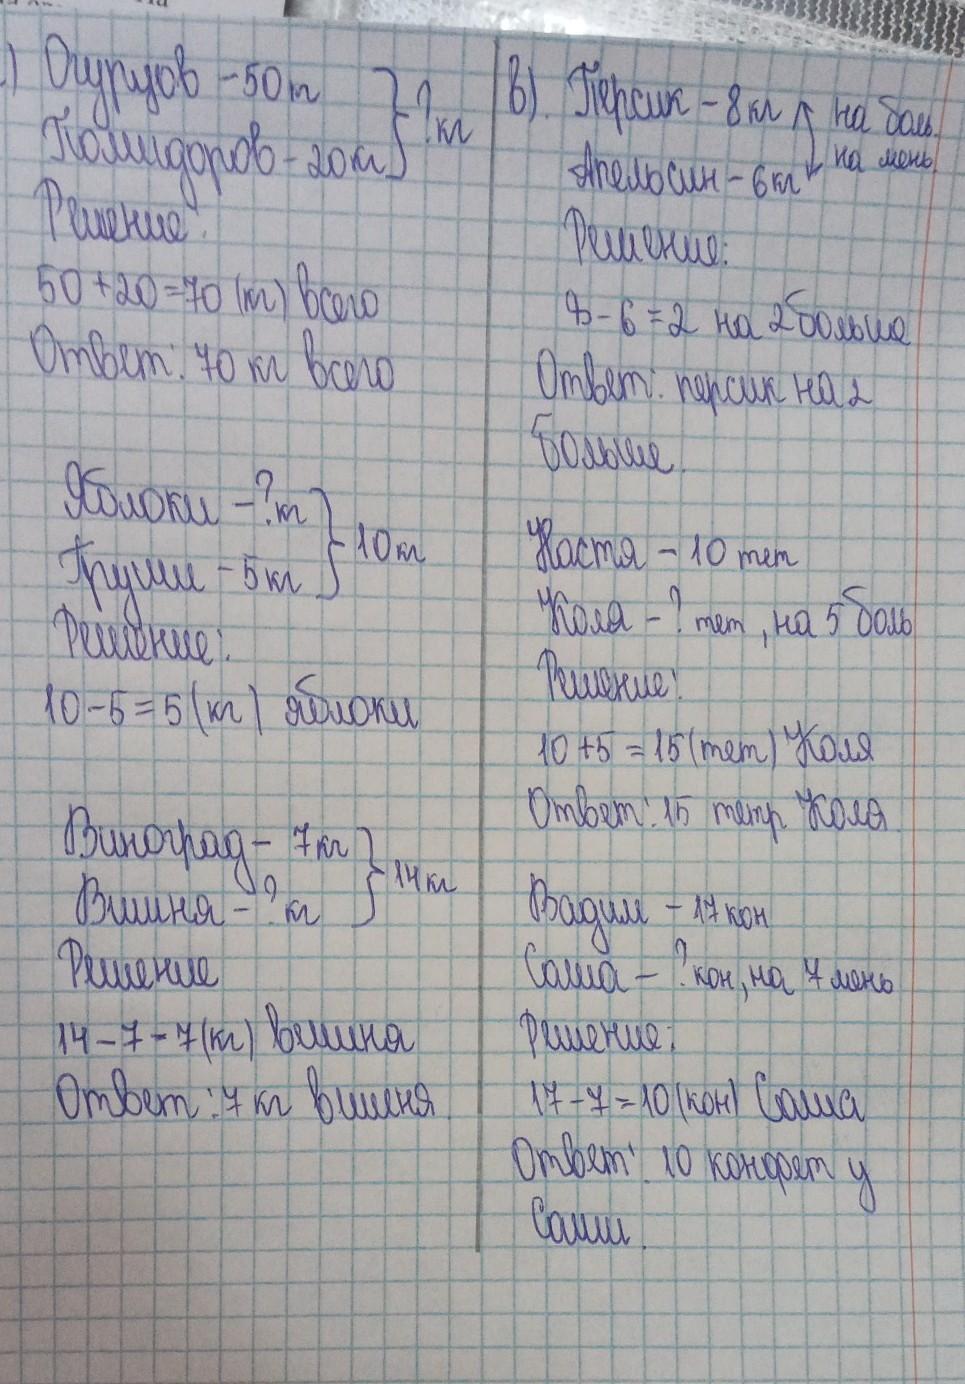 ) Огурцов - 50 т
Помидоров - 20 кг
? кг
Решение:
50 + 20 = 70 (кг) всего
Ответ: 70 кг всего
Яблоки - ? кг
Груши - 5 кг
10 кг
Решение:
10 - 5 = 5 (кг) яблоки
Виноград - 7 кг
Вишня - ? кг
14 кг
Решение
14 - 7 = 7 (кг) вишня
Ответ: 7 кг вишня
В). Персик - 8 кг на боль.
Апельсин - 6 кг на мень.
Решение:
8 - 6 = 2 на 2 больше
Ответ: персик на 2
больше.
Настя - 10 тет
Коля - ? тет, на 5 боль
Решение:
10 + 5 = 15 (тет) Коля
Ответ: 15 тетр Коля.
Вадим - 17 кон
Саша - ? кон, на 7 мень
Решение:
17 - 7 = 10 (кон) Саша
Ответ: 10 конфет у
Саши.